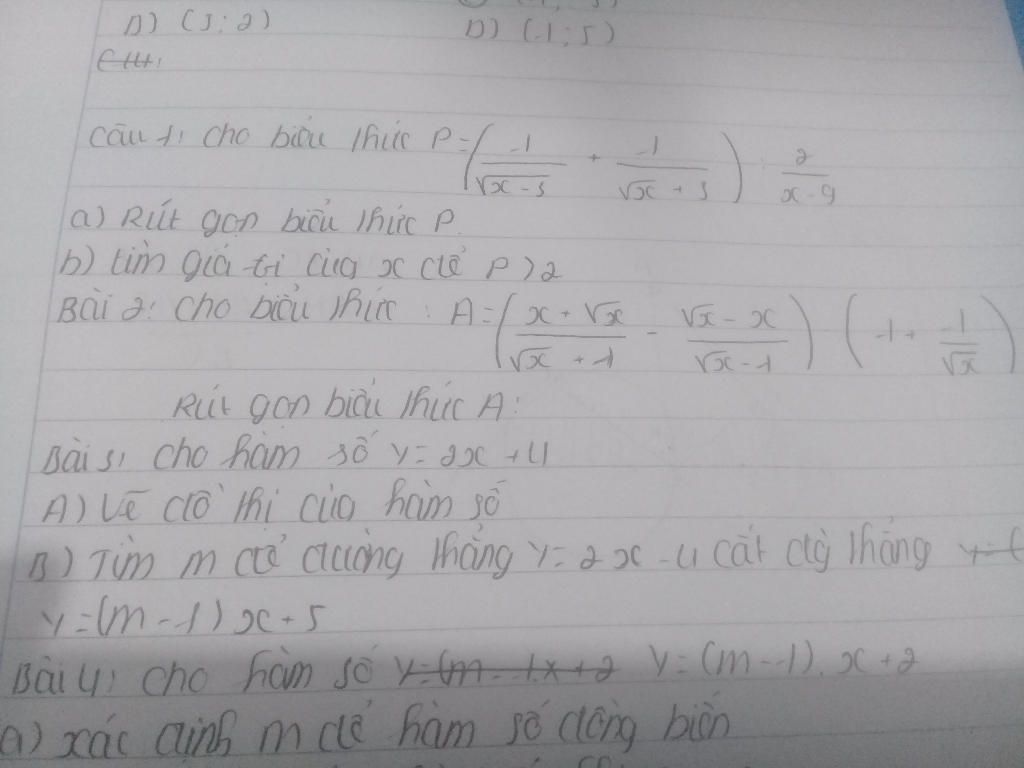 B) (3; 2) D) (-1; 5)
Câu 1: cho biểu thức P = (1/(√x - 3) + 1/(√x + 3)) : 2/(x - 9)
a) Rút gọn biểu thức P.
b) tìm giá trị của x để P > 2
Bài 2: Cho biểu thức : A = ((x + √x)/(√x + 1) - (√x - x)/(√x - 1)) (1 + 1/√x)
Rút gọn biểu thức A:
Bài 3: cho hàm số y = 2x + 4
A) Vẽ đồ thị của hàm số
B) Tìm m để đường thẳng y = 2x - 4 cắt đg thẳng
y = (m - 1) x + 5
Bài 4: cho hàm số y = (m - 1). x + 2
a) xác định m để hàm số đồng biến